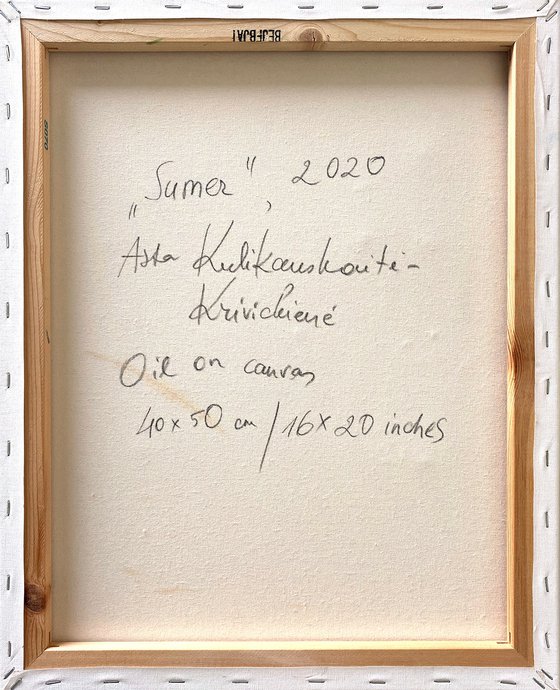 „Sumer“, 2020
Asta Kulikauskaitė-
Krivickienė
Oil on canvas
40x50 cm / 16x20 inches
5070